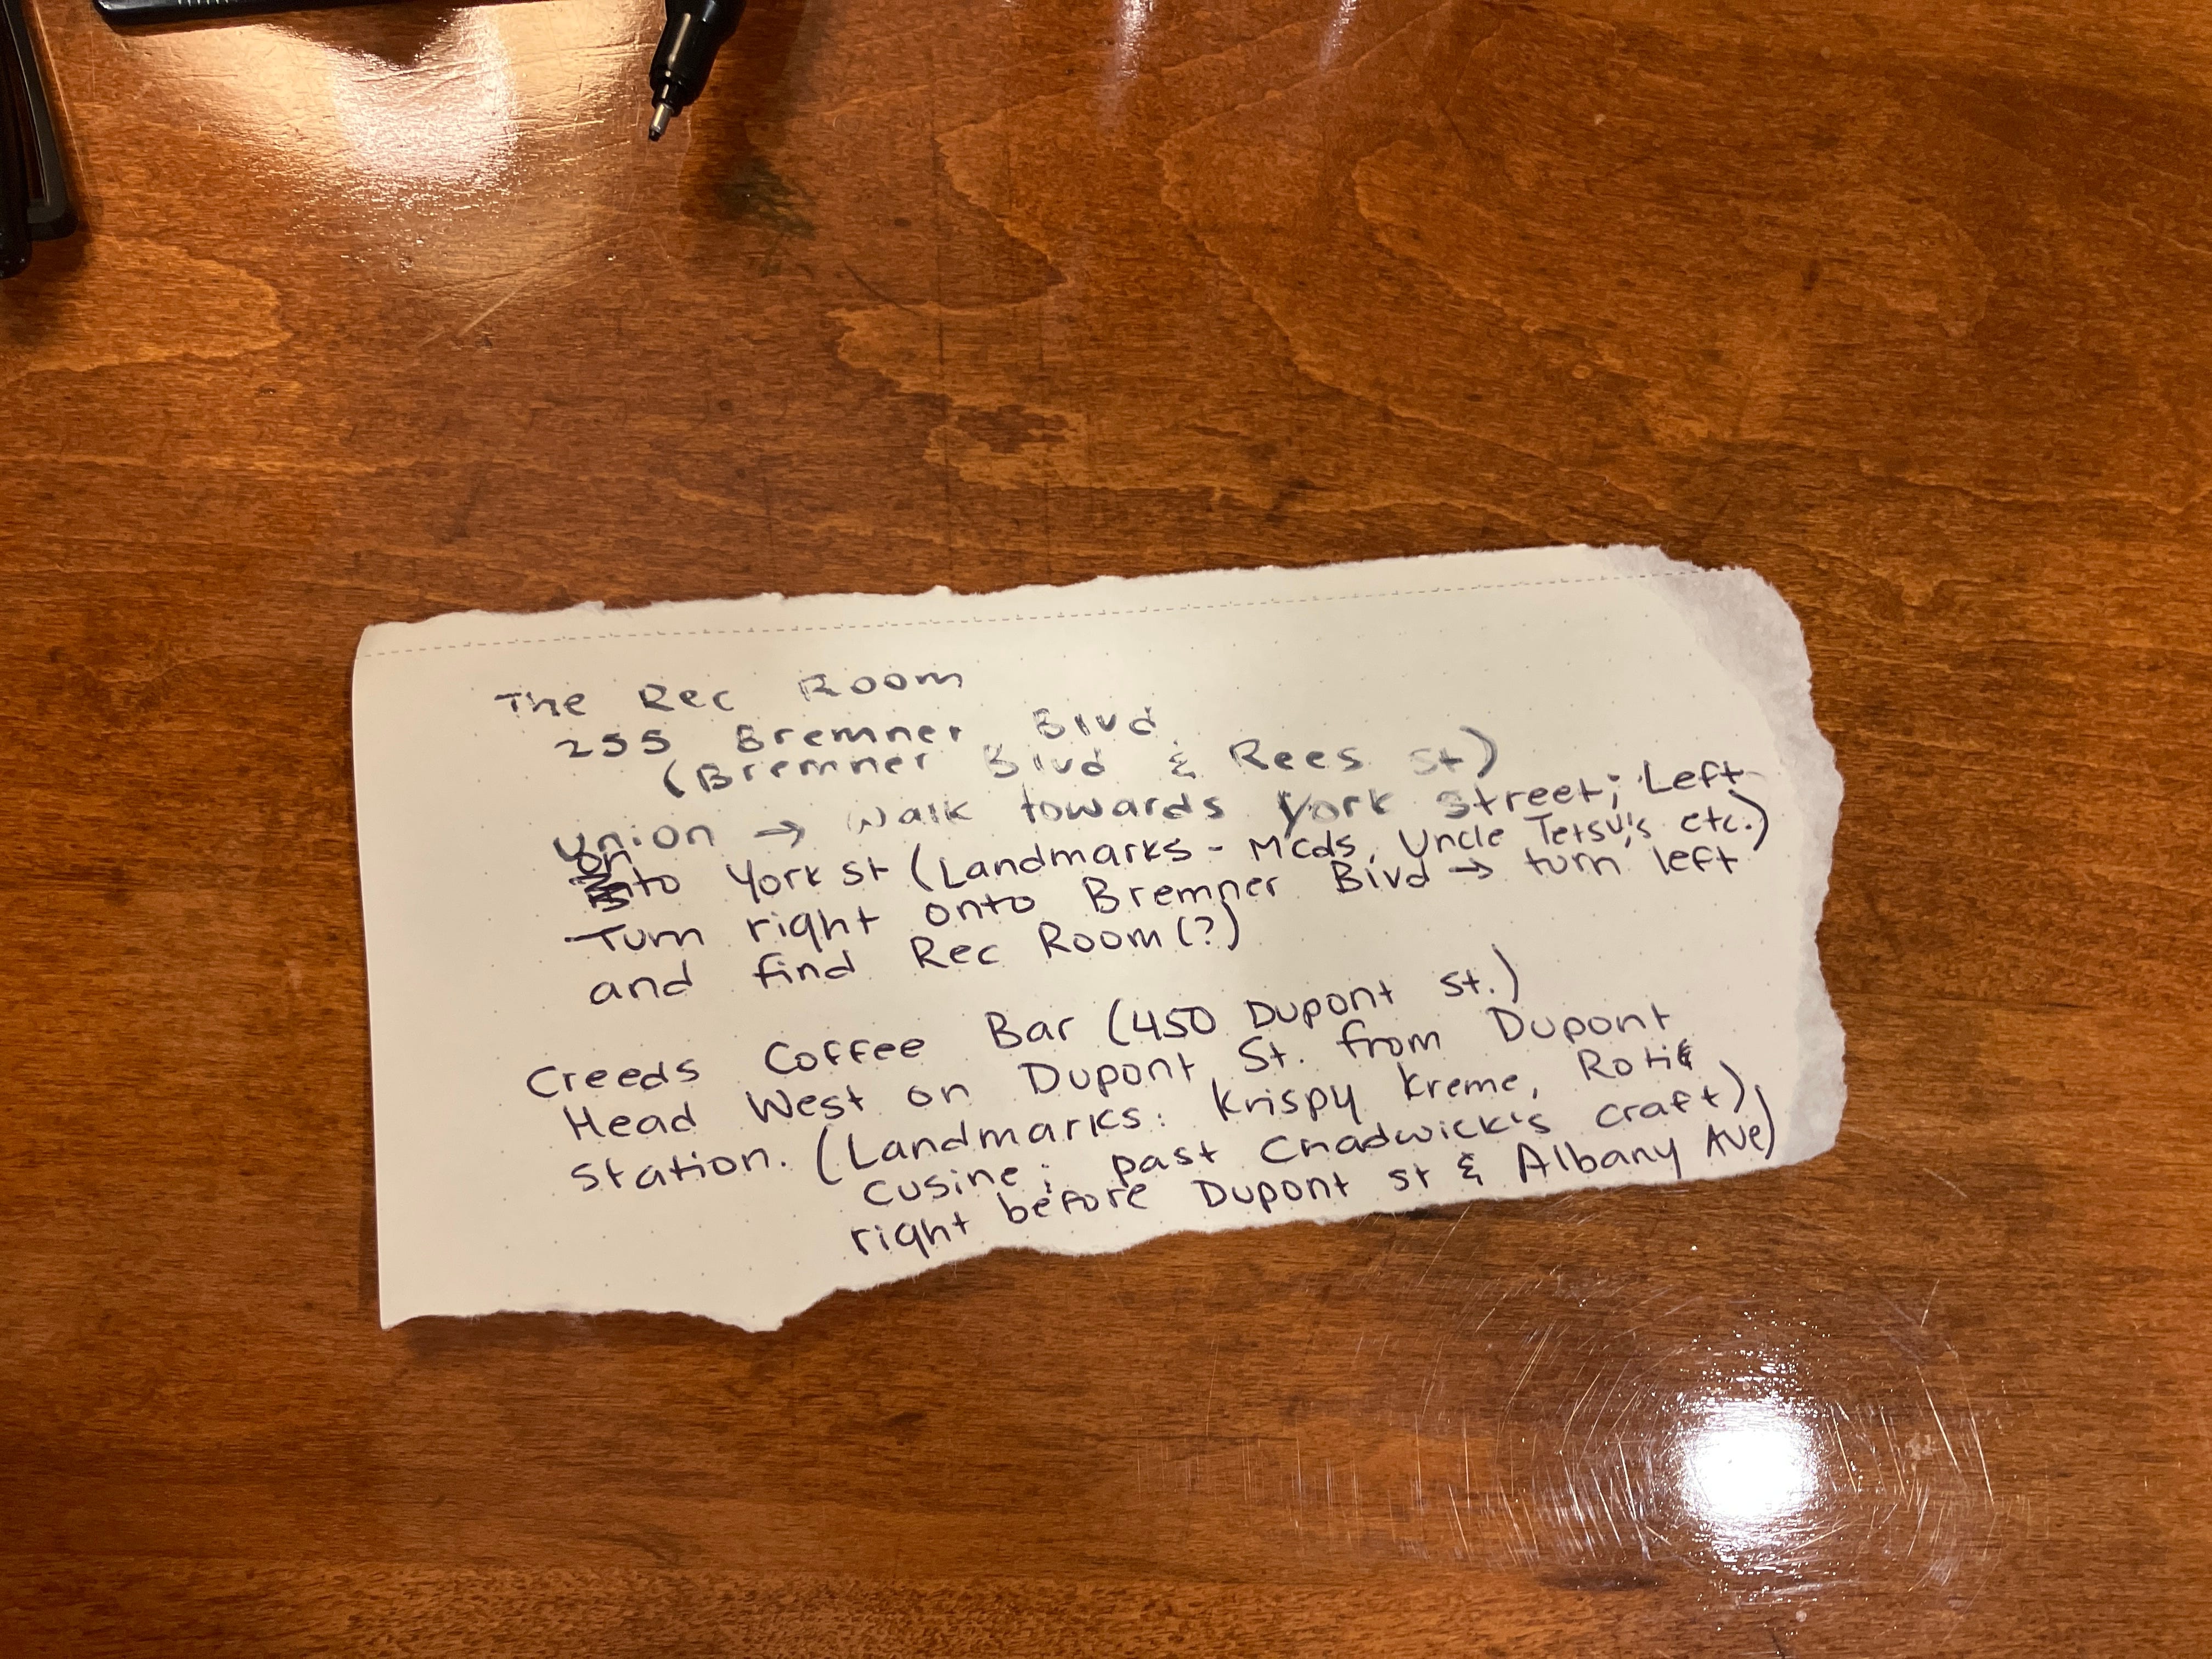 The Rec Room
255 Bremner Blvd
(Bremner Blvd & Rees St)
Union → Walk towards York Street; Left
onto York St (Landmarks - McDs, Uncle Tetsu's etc.)
Turn right onto Bremner Blvd → turn left
and find Rec Room (?)
Creeds Coffee Bar (450 Dupont St.)
Head West on Dupont St. from Dupont
Station. (Landmarks: Krispy Kreme, Roti &
Cusine; past Chadwick's craft),
right before Dupont St & Albany Ave)